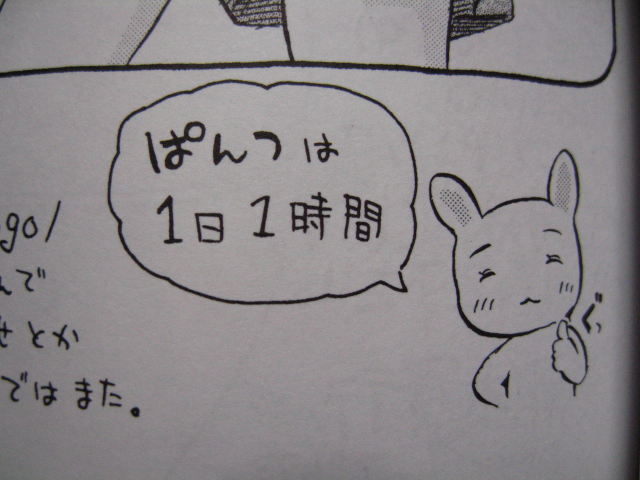 ぱんつは
1日1時間
go/
んで
さとか
ではまた。
ぐっ